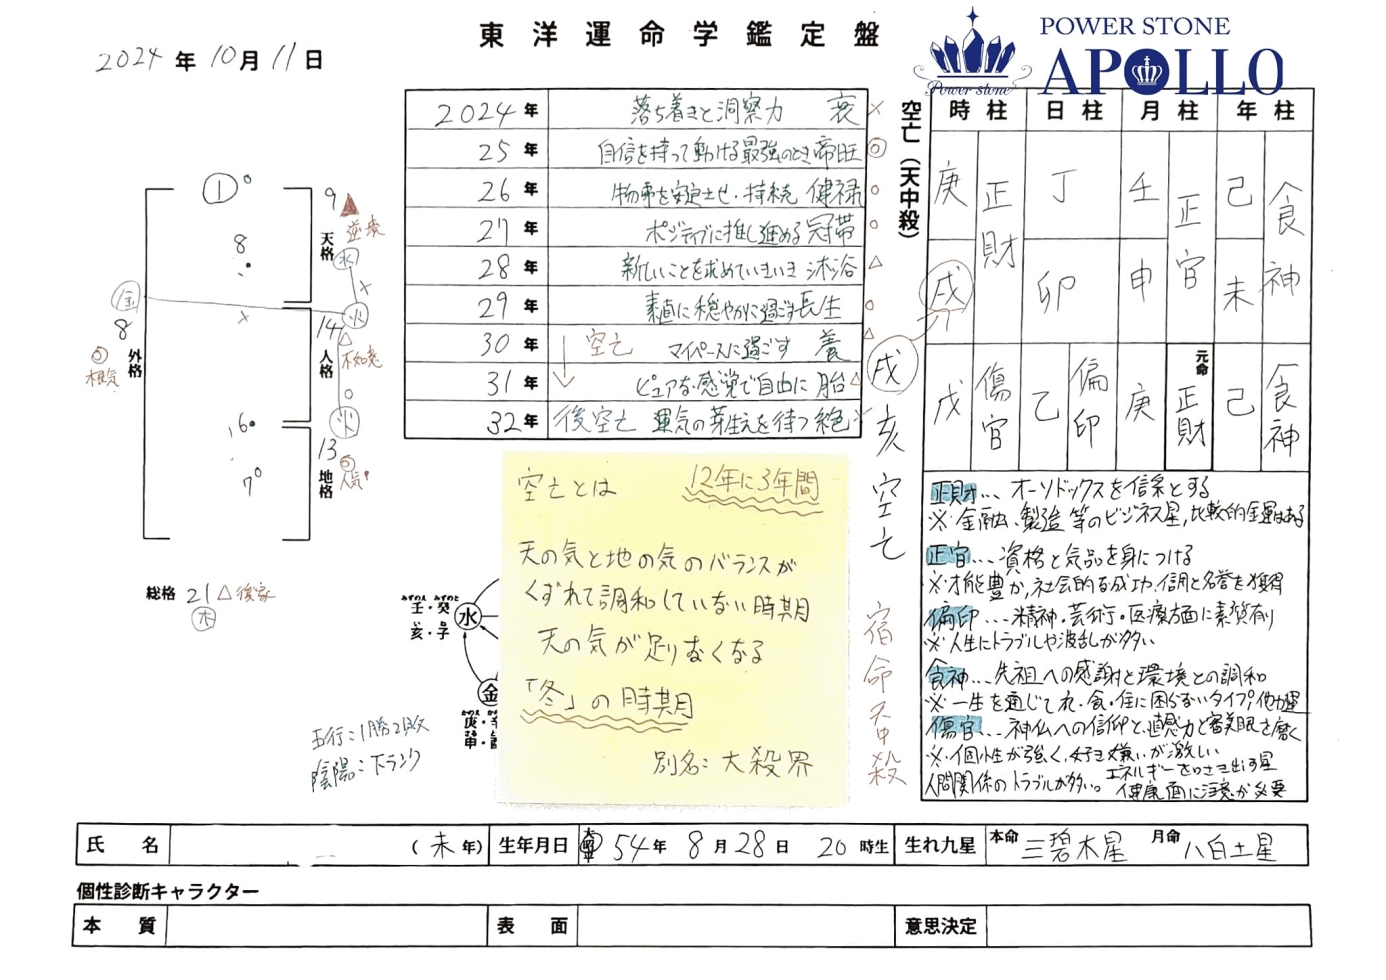 東洋運命学鑑定盤
POWER STONE
APOLLO
Power stone
2024年10月11日
2024年 落ち着きと洞察力 衰 ×
25年 自信を持って動ける最強のとき 帝旺 ◎
26年 物事を安定させ・持続 健禄 ○
27年 ポジティブに推し進める 冠帯 ○
28年 新しいことを求めていきいき 沐浴 △
29年 素直に穏やかに過ごす 長生 ○
30年 空亡 マイペースに過ごす 養 △
31年 ピュアな感覚で自由に 胎 △
32年 後空亡 運気の芽生えを待つ 絶 ×
空亡(天中殺)
戌亥空亡
宿命大殺
時柱 日柱 月柱 年柱
庚 正財 丁 壬 正官 己 食神
戌 卯 申 未
戊 傷官 乙 偏印 庚 元命 正財 己 食神
正財… オーソドックスを信条とする
※金融、製造等のビジネス星,比較的金運はある
正官… 資格と気品を身につける
※才能豊か,社会的な成功、信調と名誉を獲得
偏印… 精神・芸術・医療方面に素質有り
※人生にトラブルや波乱が多い
食神… 先祖への感謝と環境との調和
※一生を通じて衣・食・住に困らないタイプ,
傷官… 神仏への信仰と、直感力と審美眼を磨く
※個性が強く、好き嫌いが激しい
人間関係のトラブルが多い。 エネルギーをはき出す星
健康面に注意が必要
1
8
6
7
9 天格 水
14 人格 火 △ 不如意
13 地格 火 ◎ 人気
金 8 外格 ◎ 根気
総格 21 △ 後家
木
五行:1勝2敗
陰陽:下ランク
みずのえ みずのと
壬・癸
亥・子
水
金
かのえ
庚・
申・
空亡とは 12年に3年間
天の気と地の気のバランスが
くずれて調和していない時期
天の気が足りなくなる
「冬」の時期
別名:大殺界
氏名 (未年) 生年月日 大昭平 54年8月28日 20時生 生れ九星 本命 三碧木星 月命 八白土星
個性診断キャラクター
本質 表面 意思決定